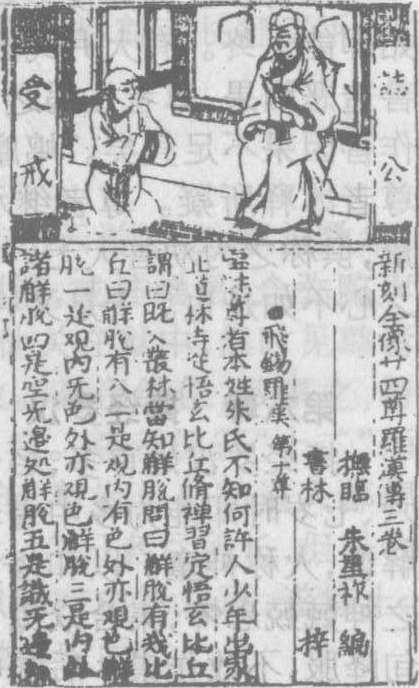 公
受戒
新刻全像廿四尊羅漢傳三卷
撫臨 朱星祚 編
書林 梓
飛錫羅漢 第十
尊者本姓 氏不知何許人少年出家
林寺從悟玄比丘脩禅習定悟玄比丘
謂曰既入叢林當知觧脱問曰觧脱有幾比
丘曰觧脱有八一是观内有色外亦观色觧
脱一是观内无色外亦观色觧脱三是内外
諸觧脱四是空无邊処觧脱五是識无邊